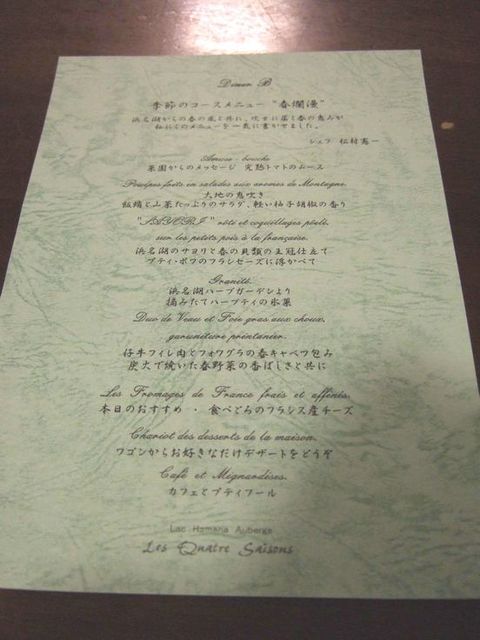 Dîner B
季節のコースメニュー "春爛漫"
浜名湖からの春の風と共に、次々に届く春の恵みが
私にこのメニューを一気に書かせました。
シェフ 松村憲一
Amuse-bouche
菜園からのメッセージ 完熟トマトのムース
Poulpes frits en salades aux aromes de Montagne.
大地の息吹き
飯蛸と山菜たっぷりのサラダ、軽い柚子胡椒の香り
"SAYORI" rôti et coquillages poêlé,
sur les petits pois à la française.
浜名湖のサヨリと春の貝類の王冠仕立て
プティ・ポワのフランセーズに浮かべて
Granité
浜名湖ハーブガーデンより
摘みたてハーブティの氷菓
Duo de Veau et Foie gras aux choux,
garuniture printanier.
仔牛フィレ肉とフォワグラの春キャベツ包み
炭火で焼いた春野菜の香ばしさと共に
Les Fromages de France frais et affinés.
本日のおすすめ ・ 食べごろのフランス産チーズ
Chariot des desserts de la maison.
ワゴンからお好きなだけデザートをどうぞ
Café et Mignardises.
カフェとプティフール
Lac Hamana Auberge
Les Quatre Saisons